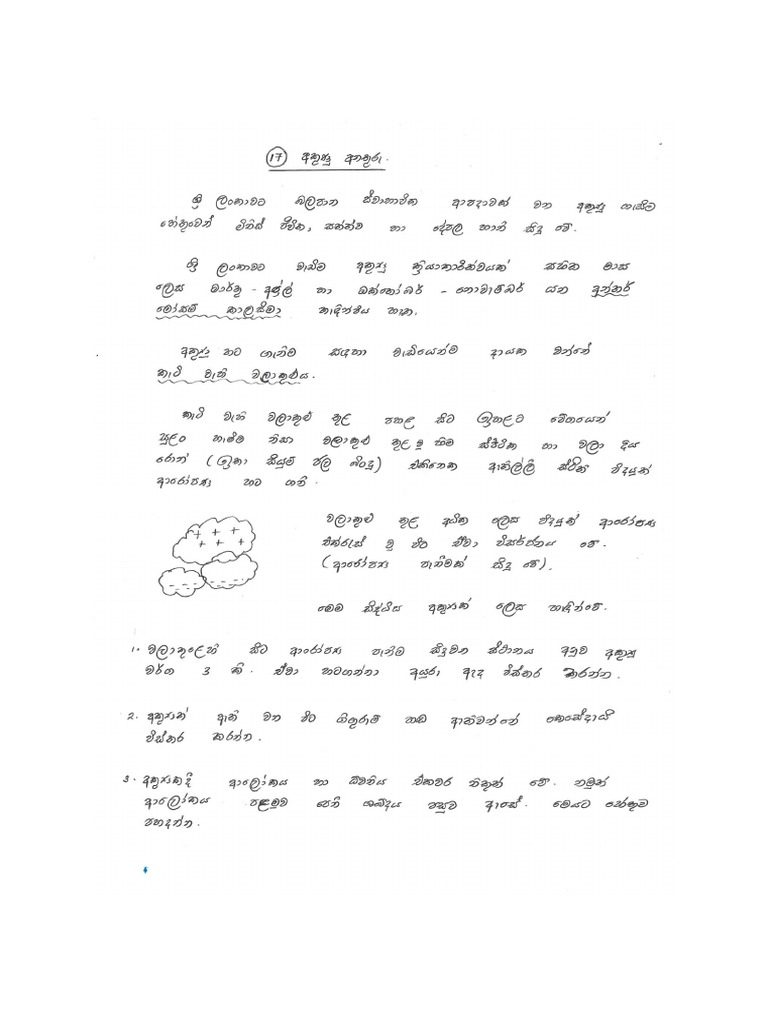 17 අකුණු අනතුරු.
ශ්‍රී ලංකාවට බලපාන ස්වාභාවික ආපදාවක් වන අකුණු ගැසීම
හේතුවෙන් මිනිස් ජීවිත, සත්ත්ව හා දේපල හානි සිදු වේ.
ශ්‍රී ලංකාවට වැඩිම අකුණු ක්‍රියාකාරිත්වයක් සහිත මාස
ලෙස මාර්තු - අප්‍රේල් හා ඔක්තෝබර් - නොවැම්බර් යන අන්තර්
මෝසම් කාලසීමා හැඳින්විය හැක.
අකුණු හට ගැනීම සඳහා වැඩියෙන්ම දායක වන්නේ
කැටි වැහි වලාකුළුය.
කැටි වැහි වලාකුළු තුළ පහළ සිට ඉහළට වේගයෙන්
සුළං හැමීම නිසා වලාකුළු තුළ වූ හිම ස්ඵටික හා වලා දිය
රොන් (ඉතා සියුම් ජල බිංදු) එකිනෙක ඇතිල්ලී ස්ථිති විද්‍යුත්
ආරෝපණ හට ගනී.
වලාකුළු තුළ අධික ලෙස විද්‍යුත් ආරෝපණ
එක්රැස් වූ විට ඒවා විසර්ජනය වේ.
(ආරෝපණ පැනීමක් සිදු වේ).
මෙම සිද්ධිය අකුණක් ලෙස හැඳින්වේ.
1. වලාකුළෙහි සිට ආරෝපණ පැනීම සිදුවන ස්ථානය අනුව අකුණු
වර්ග 3 කි. ඒවා හටගන්නා අයුරු ඇඳ විස්තර කරන්න.
2. අකුණක් ඇති වන විට ගිගුරුම් හඬ ඇතිවන්නේ කෙසේදැයි
විස්තර කරන්න.
3. අකුණකදී ආලෝකය හා ධ්වනිය එකවර නිකුත් වේ. නමුත්
ආලෝකය පළමුව පෙනී ශබ්දය පසුව ඇසේ. මෙයට හේතුව
පහදන්න.